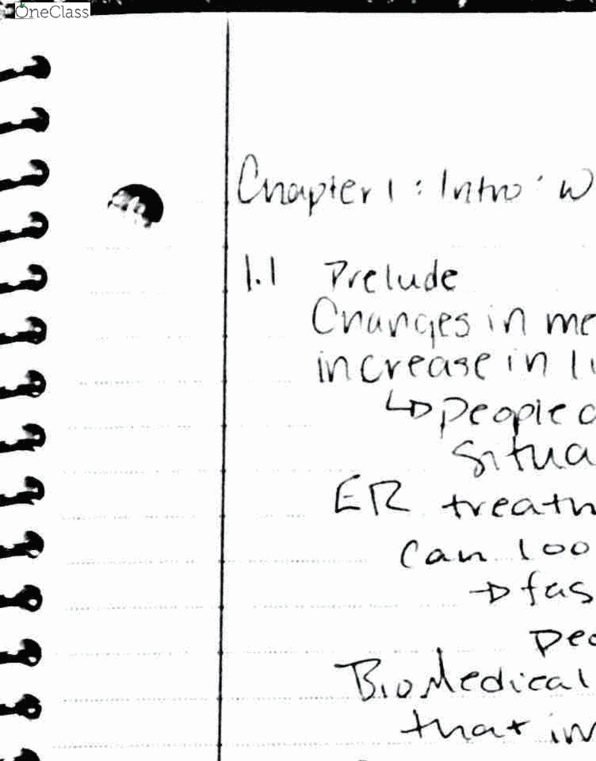 OneClass
Chapter 1 : Intro : W
1.1 Prelude
Changes in me
increase in li
↳ people a
situa
ER treatm
can loo
→ fas
peo
BioMedical
that in